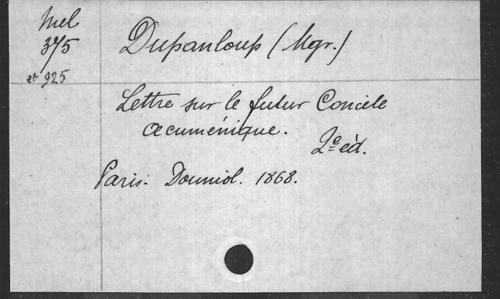 Mel
375
et 925
Dupanloup (Mgr.)
Lettre sur le futur Concile
œcuménique.
2e éd.
Paris. Douniol. 1868.